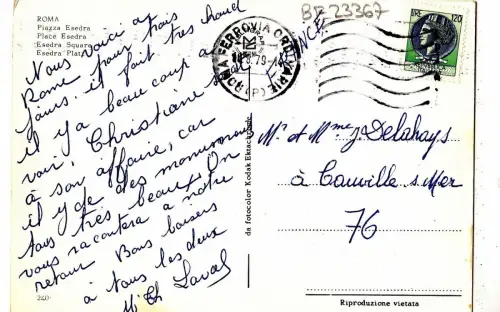 ROMA
Piazza Esedra
Place Esedra
Esedra Square
Esedra Platz
Nous voici à
Rome pour trois
jours. il fait très chaud
il y a beaucoup a
voir, Christiane
à son affaire, car
il y a de des monuments
tous très beaux. On
vous racontera à notre
retour Bons baisers
à tous les deux
M. Th Laval
240
da fotocolor Kodak Ektachrome
ROMA FERROVIA ORDINARIE (P)
8.79
BE 23367
LIRE 120
Mr et Mme J. Delahays
à Cauville s Mer
76
Riproduzione vietata